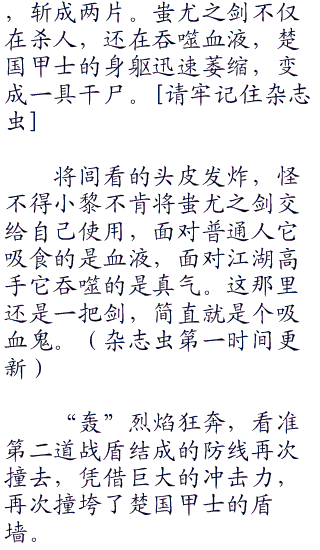 ，斩成两片。蚩尤之剑不仅
在杀人，还在吞噬血液，楚
国甲士的身躯迅速萎缩，变
成一具干尸。[请牢记住杂志
虫]
将闾看的头皮发炸，怪
不得小黎不肯将蚩尤之剑交
给自己使用，面对普通人它
吸食的是血液，面对江湖高
手它吞噬的是真气。这那里
还是一把剑，简直就是个吸
血鬼。（杂志虫第一时间更
新）
“轰”烈焰狂奔，看准
第二道战盾结成的防线再次
撞去，凭借巨大的冲击力，
再次撞垮了楚国甲士的盾
墙。